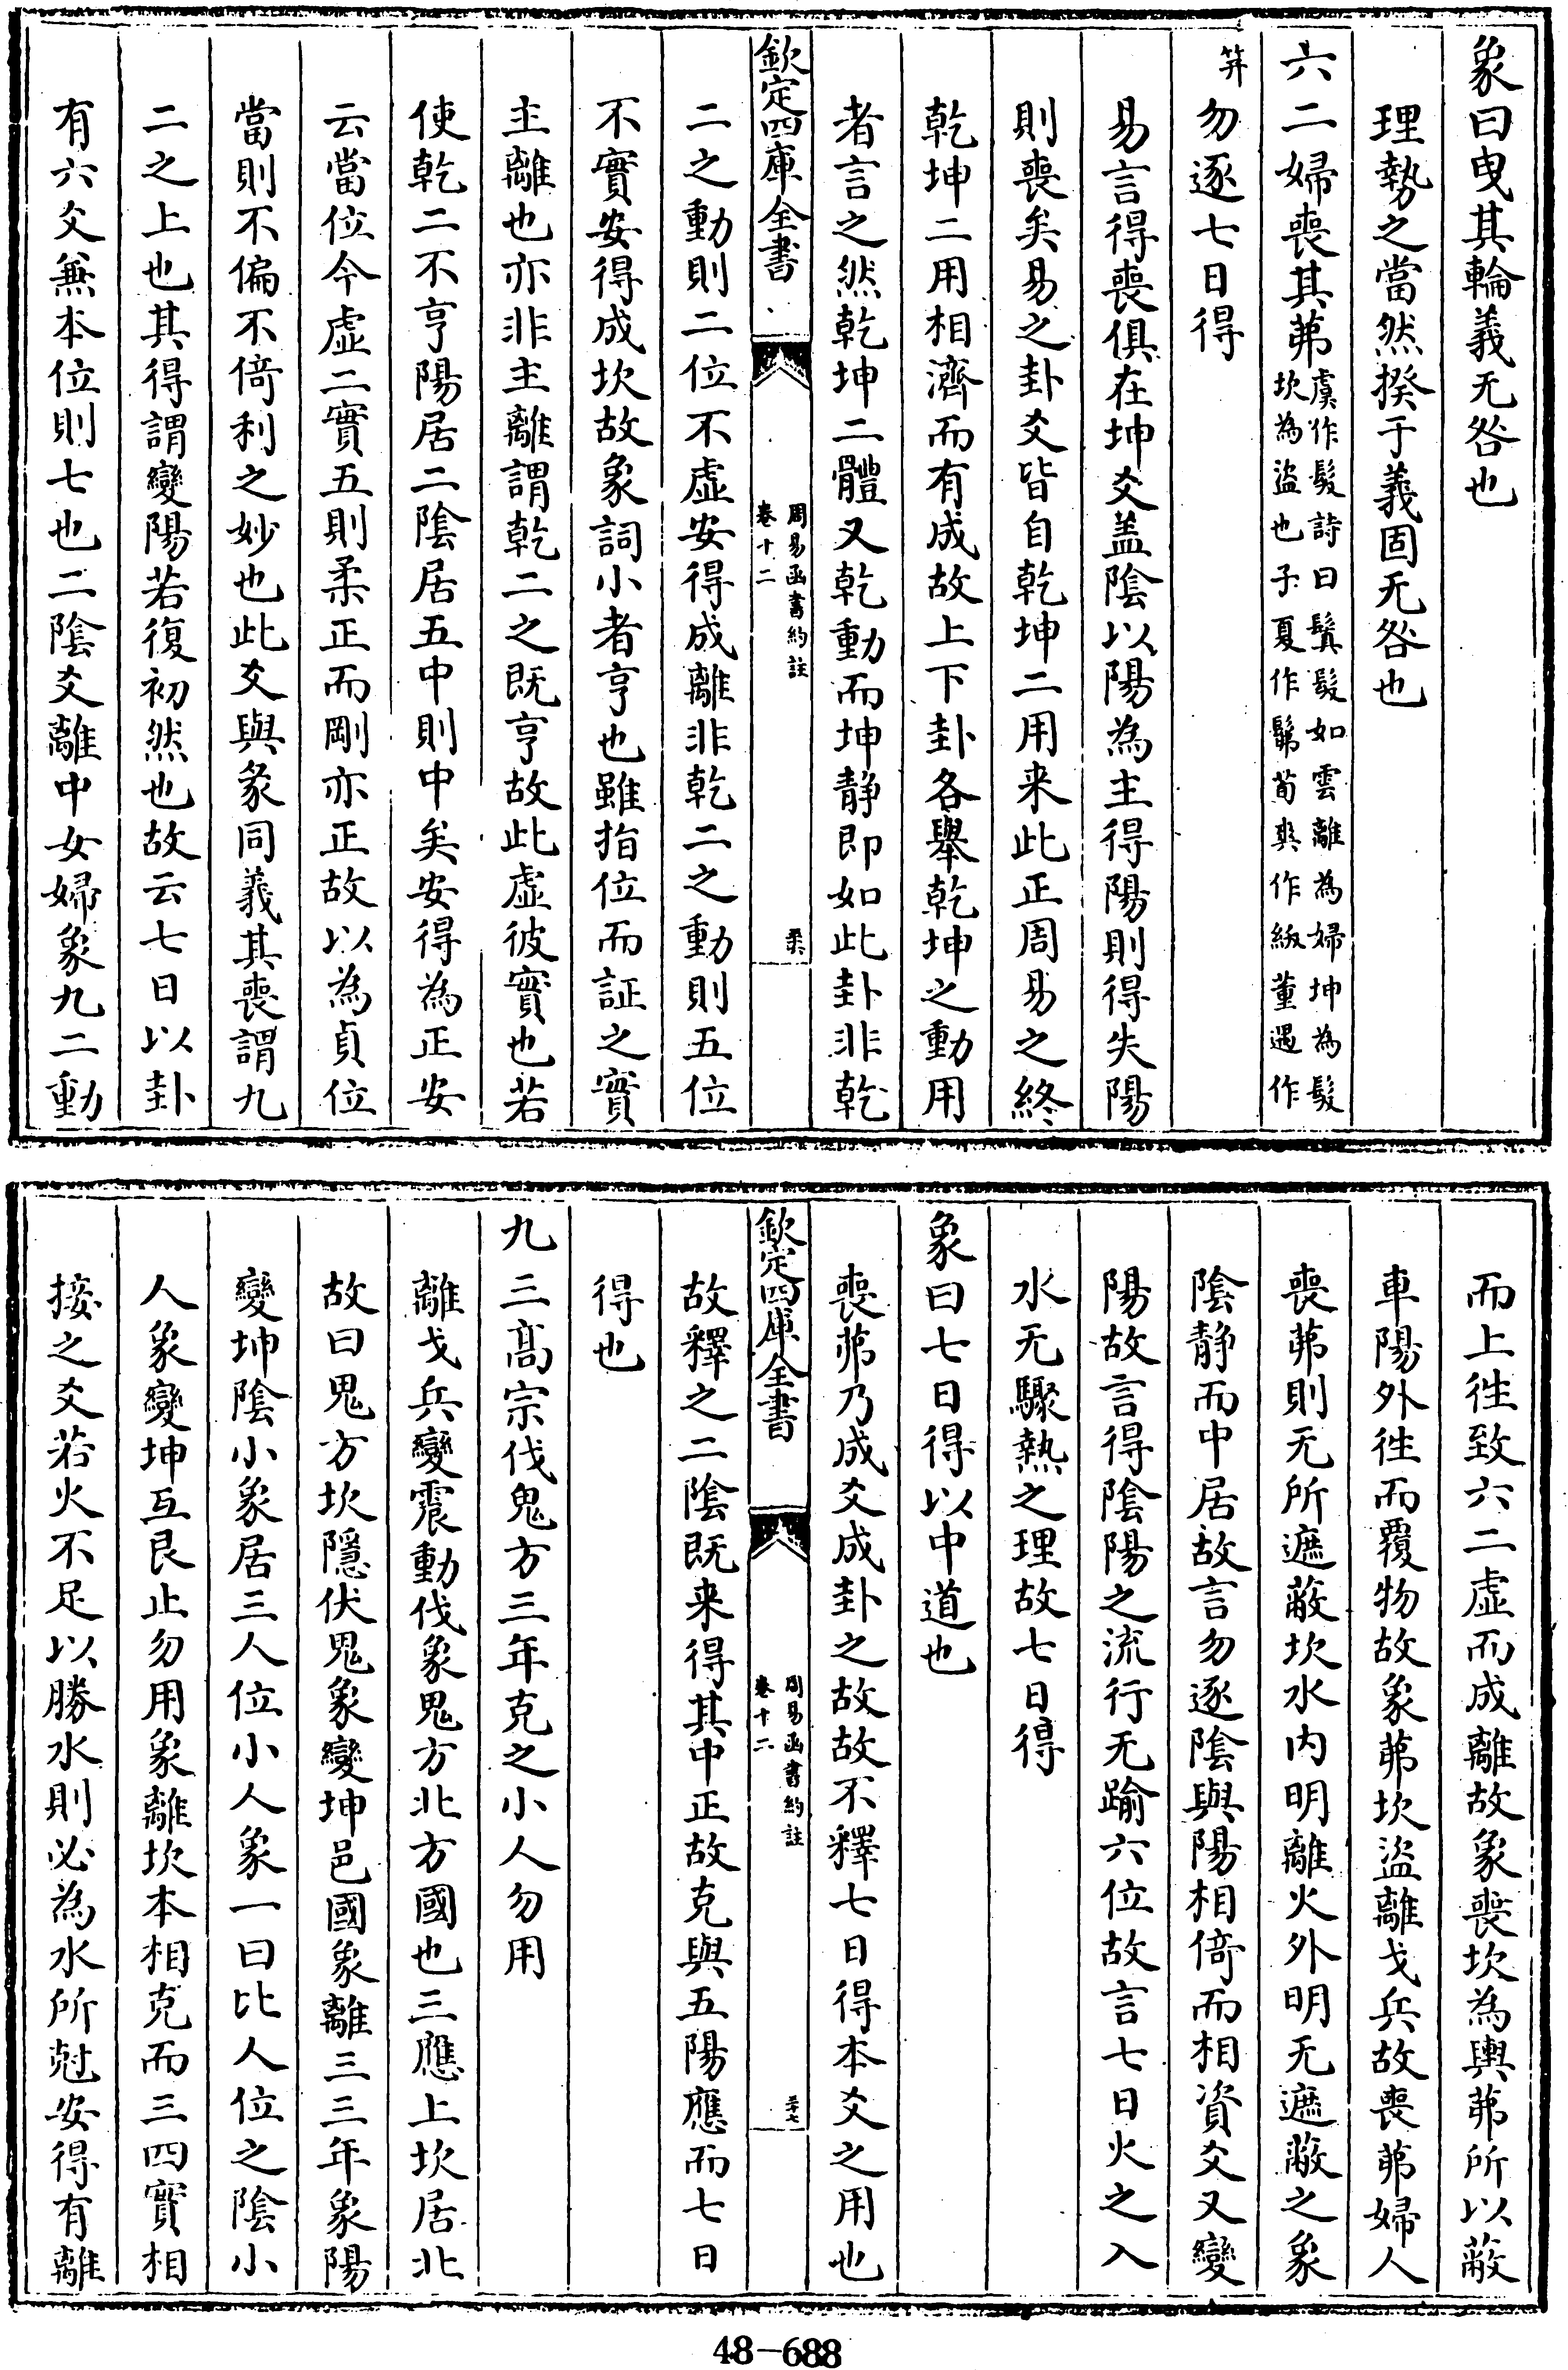 象曰曳其輪義无咎也
理勢之當然揆于義固无咎也
六二婦喪其茀虞作髮詩曰鬒髮如雲離為婦坤為髮坎為盜也子夏作髴荀爽作紱董遇作
笄勿逐七日得
易言得喪俱在坤爻盖陰以陽為主得陽則得失陽
則喪矣易之卦爻皆自乾坤二用来此正周易之終
乾坤二用相濟而有成故上下卦各舉乾坤之動用
者言之然乾坤二體又乾動而坤静即如此卦非乾
欽定四庫全書
周易函書約註
卷十二
二之動則二位不虛安得成離非乾二之動則五位
不實安得成坎故彖詞小者亨也雖指位而証之實
主離也亦非主離謂乾二之既亨故此虛彼實也若
使乾二不亨陽居二陰居五中則中矣安得為正安
云當位今虛二實五則柔正而剛亦正故以為貞位
當則不偏不倚利之妙也此爻與彖同義其喪謂九
二之上也其得謂變陽若復初然也故云七日以卦
有六爻無本位則七也二陰爻離中女婦象九二動
而上徃致六二虛而成離故象喪坎為輿茀所以蔽
車陽外徃而覆物故象茀坎盜離戈兵故喪茀婦人
喪茀則无所遮蔽坎水内明離火外明无遮蔽之象
陰静而中居故言勿逐陰與陽相倚而相資爻又變
陽故言得陰陽之流行无踰六位故言七日火之入
水无驟熱之理故七日得
象曰七日得以中道也
喪茀乃成爻成卦之故故不釋七日得本爻之用也
欽定四庫全書
周易函書約註
卷十二
三十七
故釋之二陰既来得其中正故克與五陽應而七日
得也
九三高宗伐鬼方三年克之小人勿用
離戈兵變震動伐象鬼方北方國也三應上坎居北
故曰鬼方坎隱伏鬼象變坤邑國象離三三年象陽
變坤陰小象居三人位小人象一曰比人位之陰小
人象變坤互艮止勿用象離坎本相克而三四實相
接之爻若火不足以勝水則必為水所尅安得有離
48-688